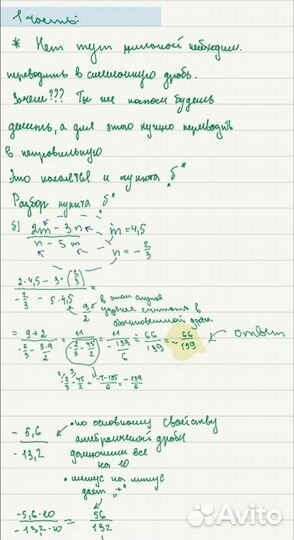 1 часть:
* Нет тут никакой необходим.
переводить в смешанную дробь.
Зачем??? Ты же потом будешь
делить, а для этого нужно переводить
в неправильную
Это касается и пункта "б"
Разбор пункта "б"
б) (2m - 3n)/(n - 5m) m = 4,5
n = -2/3
(2·4,5 - 3·(2/3))/(-2/3 - 5·4,5) =
9/2 в этом случае
удобнее считать в
обыкновенной дроби
= (9+2)/(-2/3 - 5·9/2) = 11/(-2/3 - 45/2) = 11/(-139/6) = 66/139 = -66/139 ответ
-2/3 - 45/2 = (-4-135)/6 = -139/6
-5,6/-13,2 • по основному свойству
алгебраической дроби
домножим все
на 10
• минус на минус
даёт "+"
(-5,6·10)/(-13,2·10) = 56/132
Avito